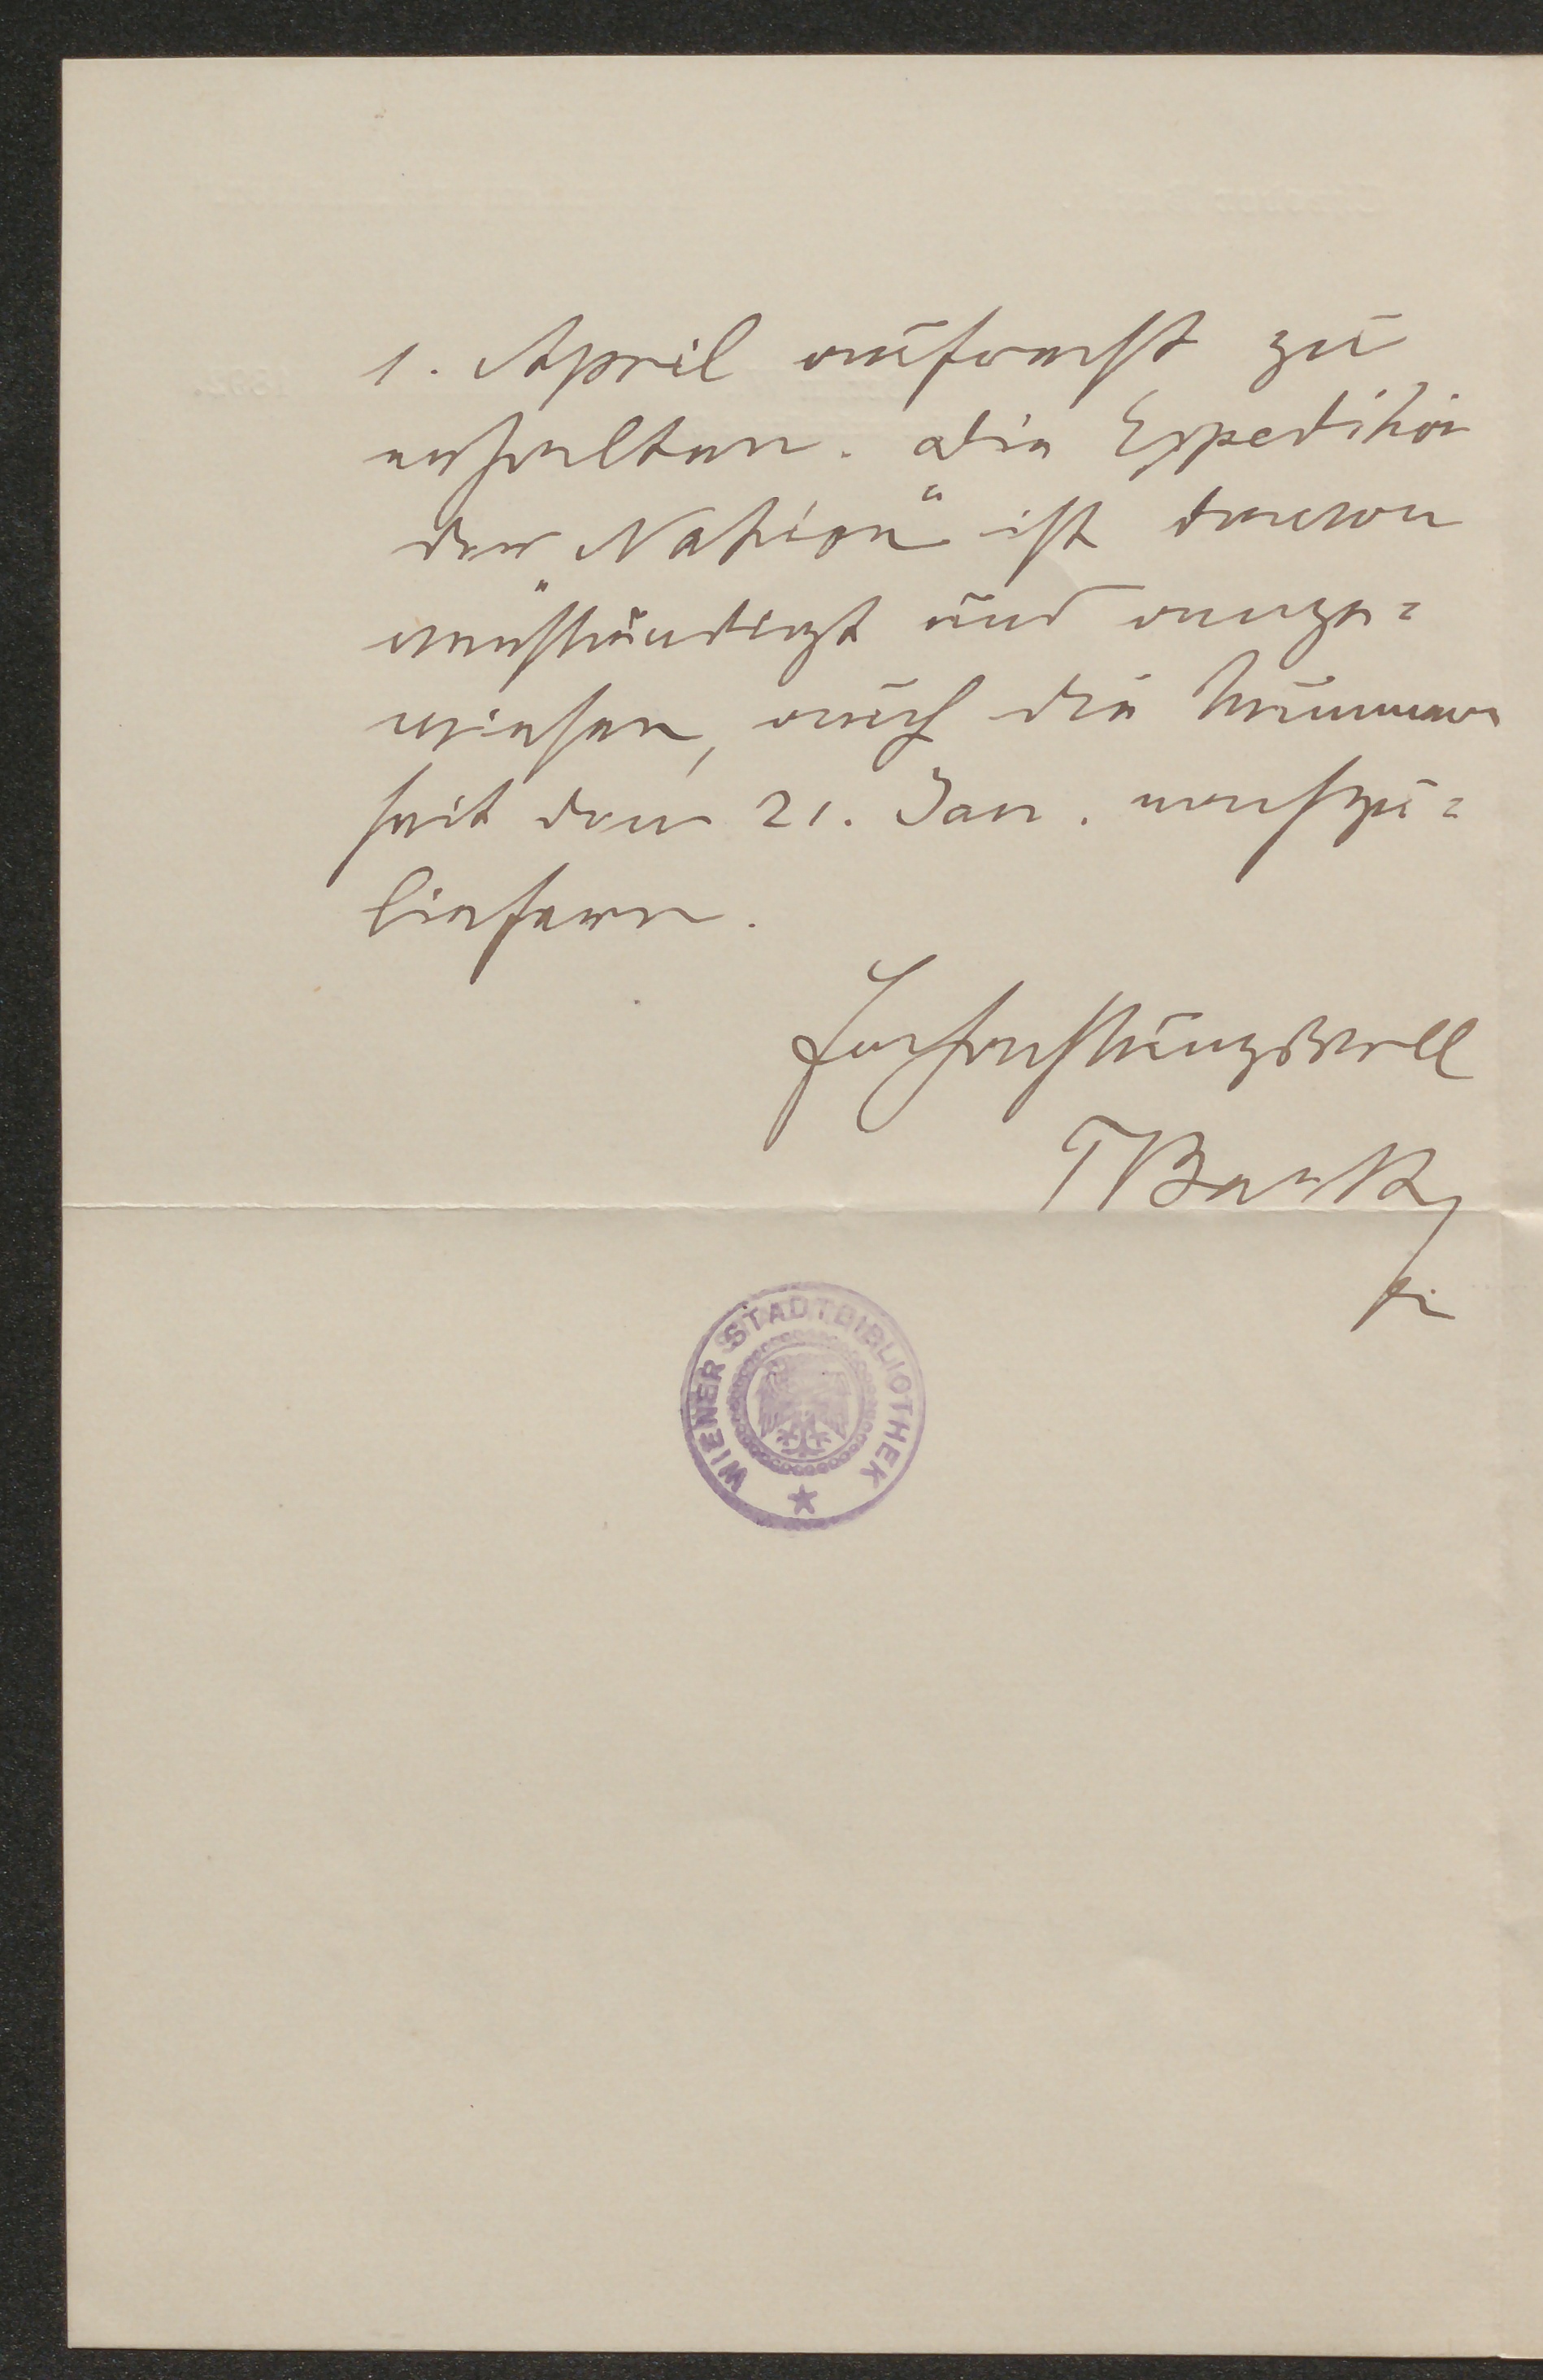 1. April aufrecht zu
erhalten. Die Expedition
der „Nation“ ist davon
verständigt und ange=
wiesen, auch die Nummern
seit dem 21. Jan. nachzu=
liefern.
Hochachtungsvoll
TBarth
WIENER STADTBIBLIOTHEK